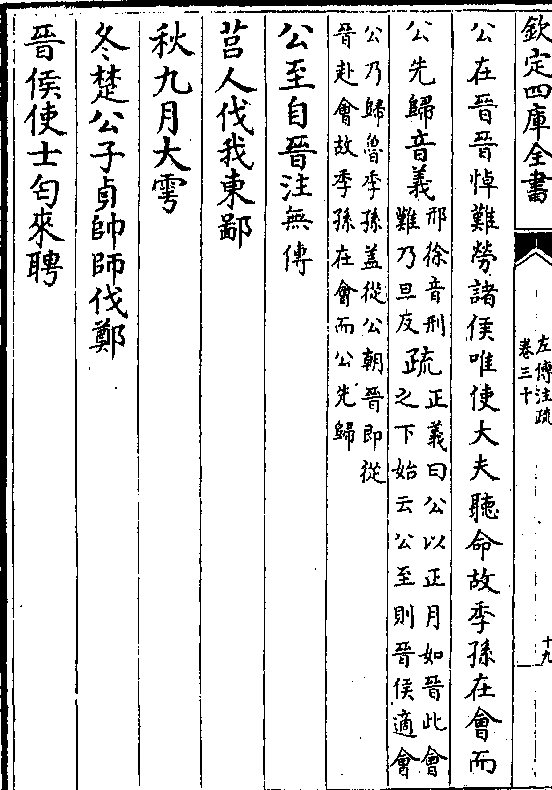 欽定四庫全書
左傳注疏
卷三十
十九
公在晉晉悼難勞諸侯唯使大夫聽命故季孫在會而
公先歸音義邢徐音刑
難乃旦反疏正義曰公以正月如晉此會
之下始云公至則晉侯適會
公乃歸魯季孫蓋從公朝晉即從
晉赴會故季孫在會而公先歸
公至自晉注無傳
莒人伐我東鄙
秋九月大雩
冬楚公子貞帥師伐鄭
晉侯使士匄來聘